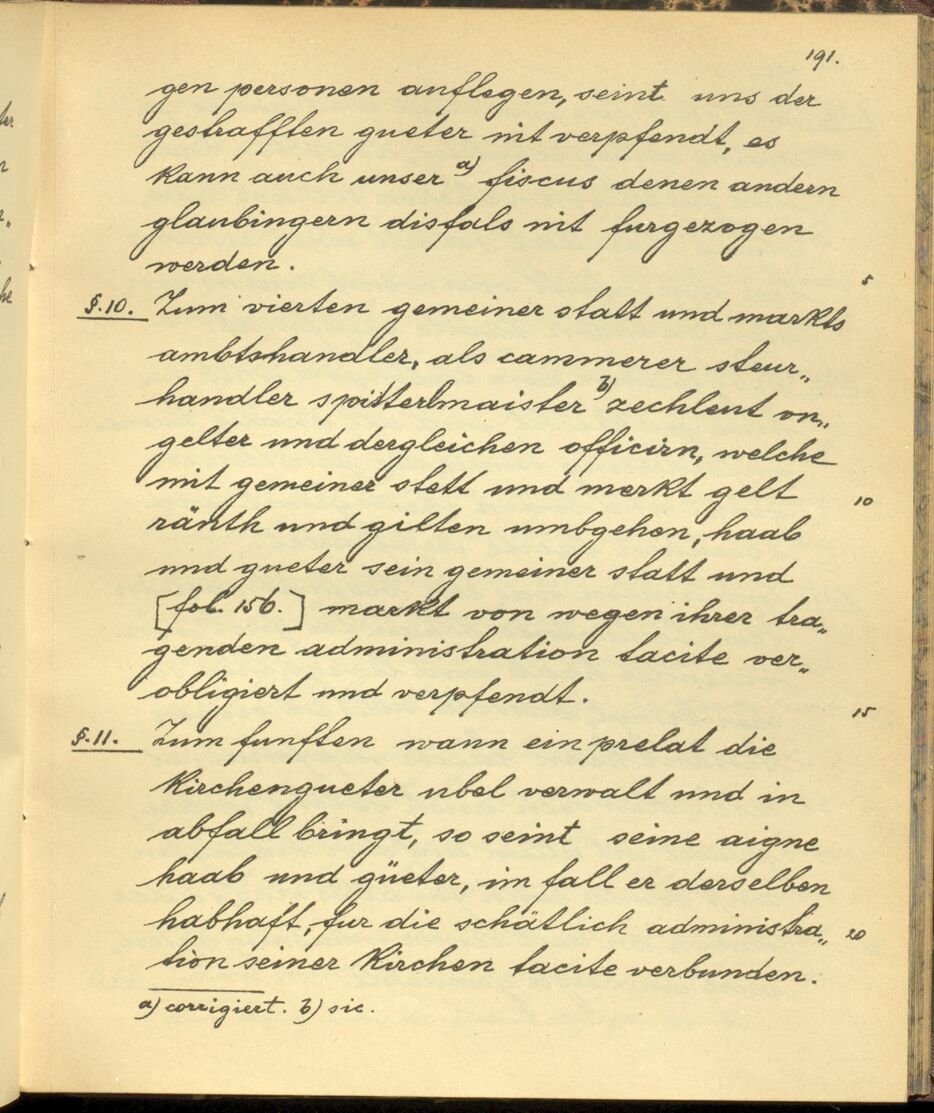 191.
gen personen auflegen, seint uns der
gestrafften gueter nit verpfendt, es
kann auch unser a) fiscus denen andern
glaubingern disfals nit furgezogen
werden.
5
§.10. Zum vierten gemeiner statt und markts
ambtshandler, als cammerer steur„
handler spitterlmaister b) zechleut un„
gelter und dergleichen officirn, welche
mit gemeiner stett und merkt gelt
10
ränth und gilten umbgehen, haab
und gueter sein gemeiner statt und
[fol. 156.] markt von wegen ihrer tra„
genden administration tacite ver„
obligiert und verpfendt.
15
§.11. Zum funften wann ein prelat die
Kirchengueter ubel verwalt und in
abfall bringt, so seint seine aigne
haab und güeter, im fall er derselben
habhaft, fur die schätlich administra„
20
tion seiner Kirchen tacite verbunden.
a) corrigiert. b) sic.